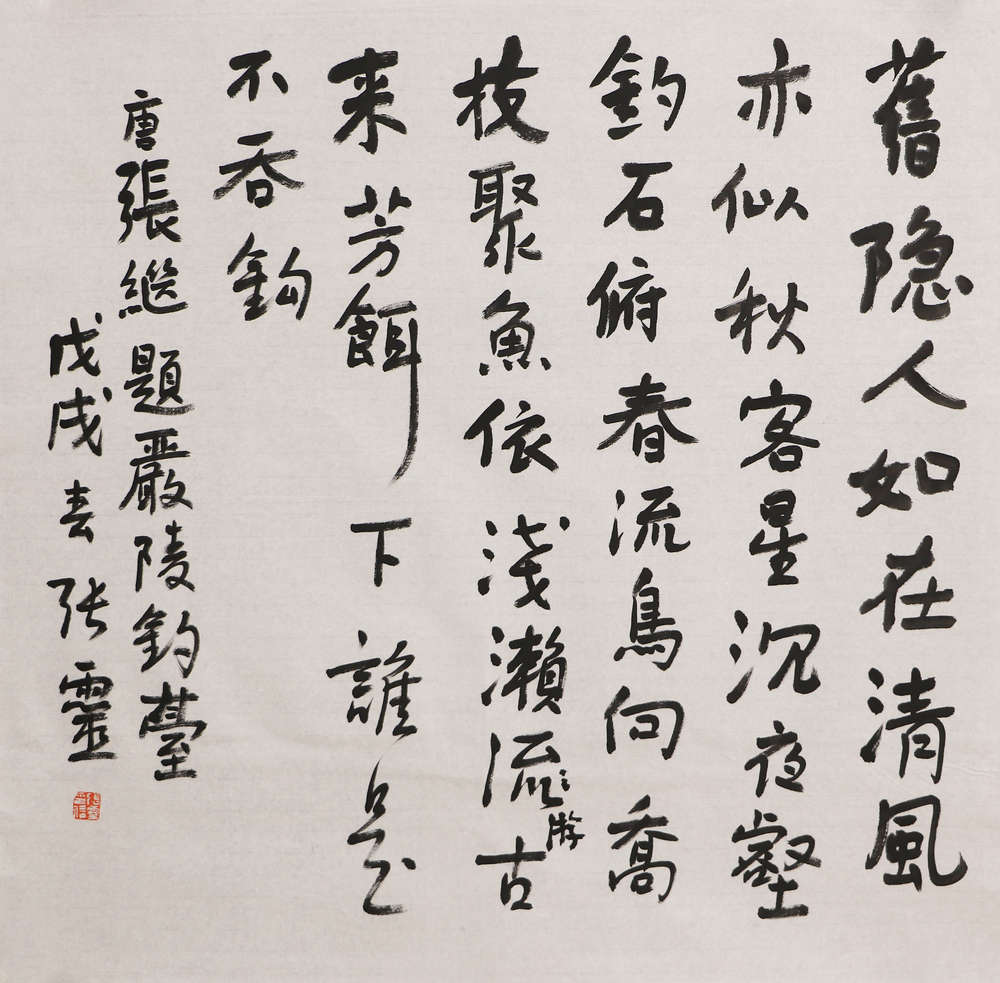 舊隐人如在清風
亦似秋客星沉夜壑
釣石俯春流鳥向喬
枝聚魚依浅瀨流古
游
来芳餌下誰是
不吞鈎
唐張継題嚴陵釣臺
戊戌春张靈